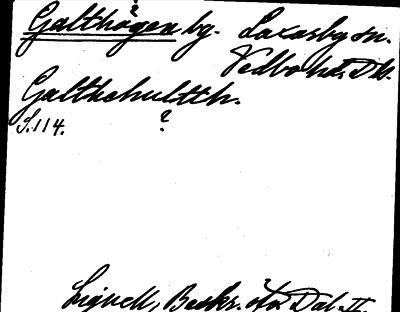 ?
Galthögen bg. Laxarby sn.
Vedbo hd. Dls.
Galthehultth.
S. 114. ?
Lignell, Beskr. öfv. Dal. II.